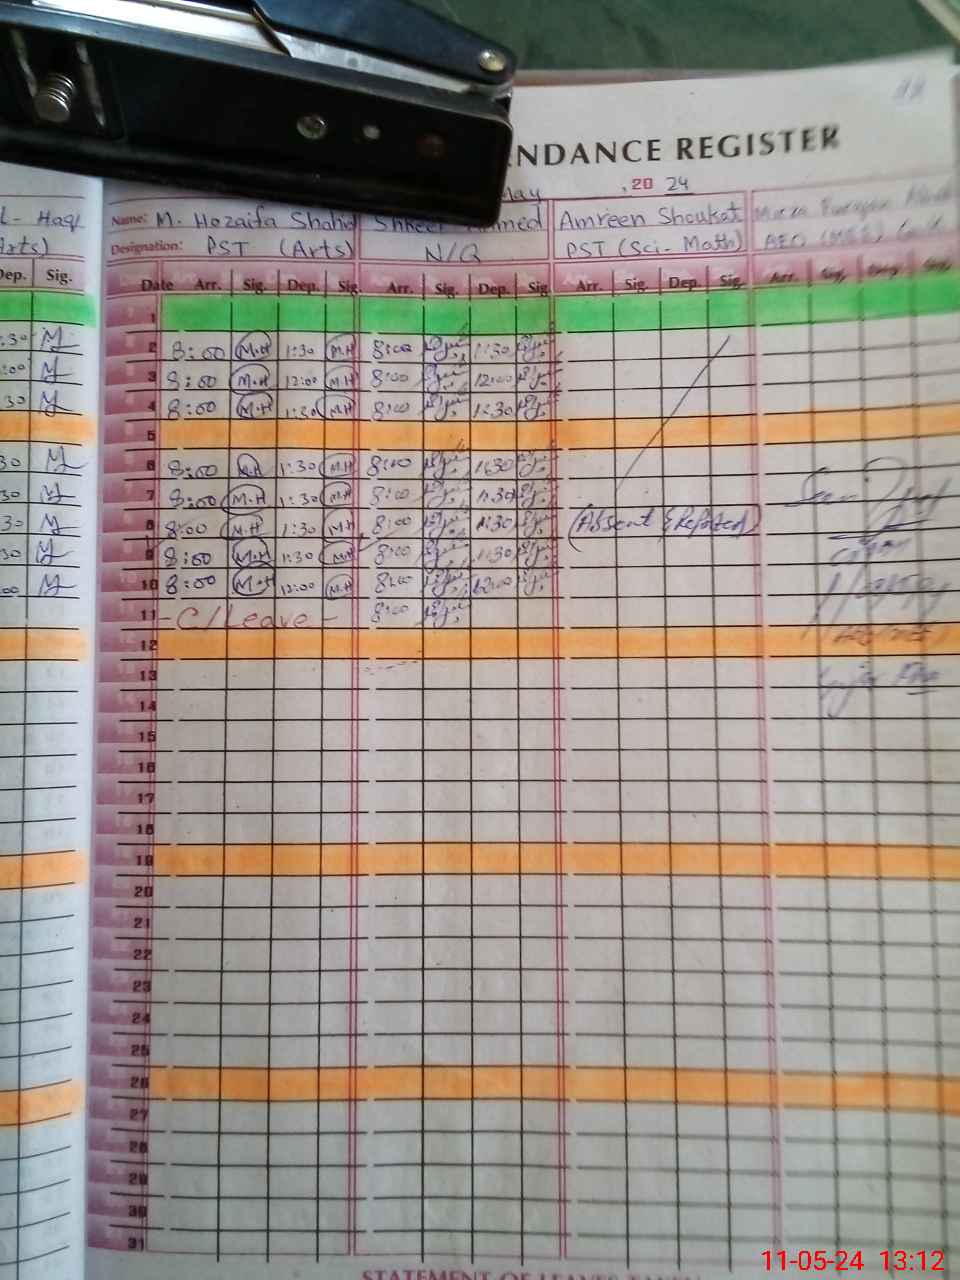 NDANCE REGISTER
May , 20 24
Name: M. Hozaifa Shahid Ahmed Amreen Shoukat Mirza
Designation: PST (Arts) N/Q PST (Sci-Math) AEO (MEE)
Haq
Arts)
Dep. Sig.
Date Arr. Sig. Dep. Sig. Arr. Sig. Dep. Sig. Arr. Sig. Dep. Sig. Arr. Sig. Dep. Sig.
1
2 8:00 M.H 1:30 M.H 8:00 1:30
3 8:00 M.H 12:00 M.H 8:00 12:00
4 8:00 M.H 1:30 M.H 8:00 1:30
5
6 8:00 M.H 1:30 M.H 8:00 1:30
7 8:00 M.H 1:30 M.H 8:00 1:30
8 8:00 M.H 1:30 M.H 8:00 1:30 (Absent & Reported)
9 8:00 M.H 1:30 M.H 8:00 1:30
10 8:00 M.H 12:00 M.H 8:00 12:00
11 - C/Leave - 8:00
12
13
14
15
16
17
18
19
20
21
22
23
24
25
26
27
28
29
30
31
STATEMENT OF LEAVES TAKEN
11-05-24 13:12